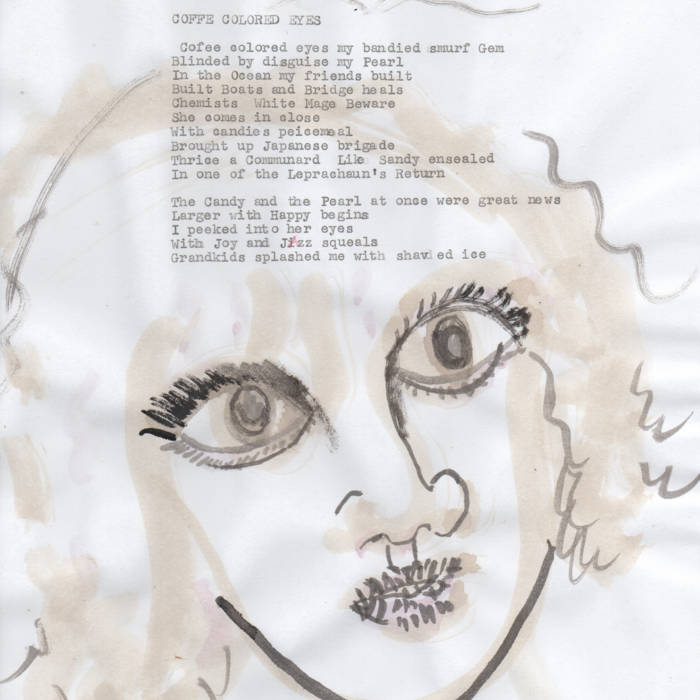 COFFE COLORED EYES
Cofee colored eyes my bandied smurf Gem
Blinded by disguise my Pearl
In the Ocean my friends built
Built Boats and Bridge heals
Chemists White Mage Beware
She comes in close
With candies peicemeal
Brought up Japanese brigade
Thrice a Communard Like Sandy ensealed
In one of the Leprachaun's Return
The Candy and the Pearl at once were great news
Larger with Happy begins
I peeked into her eyes
With Joy and Jizz squeals
Grandkids splashed me with shaved ice